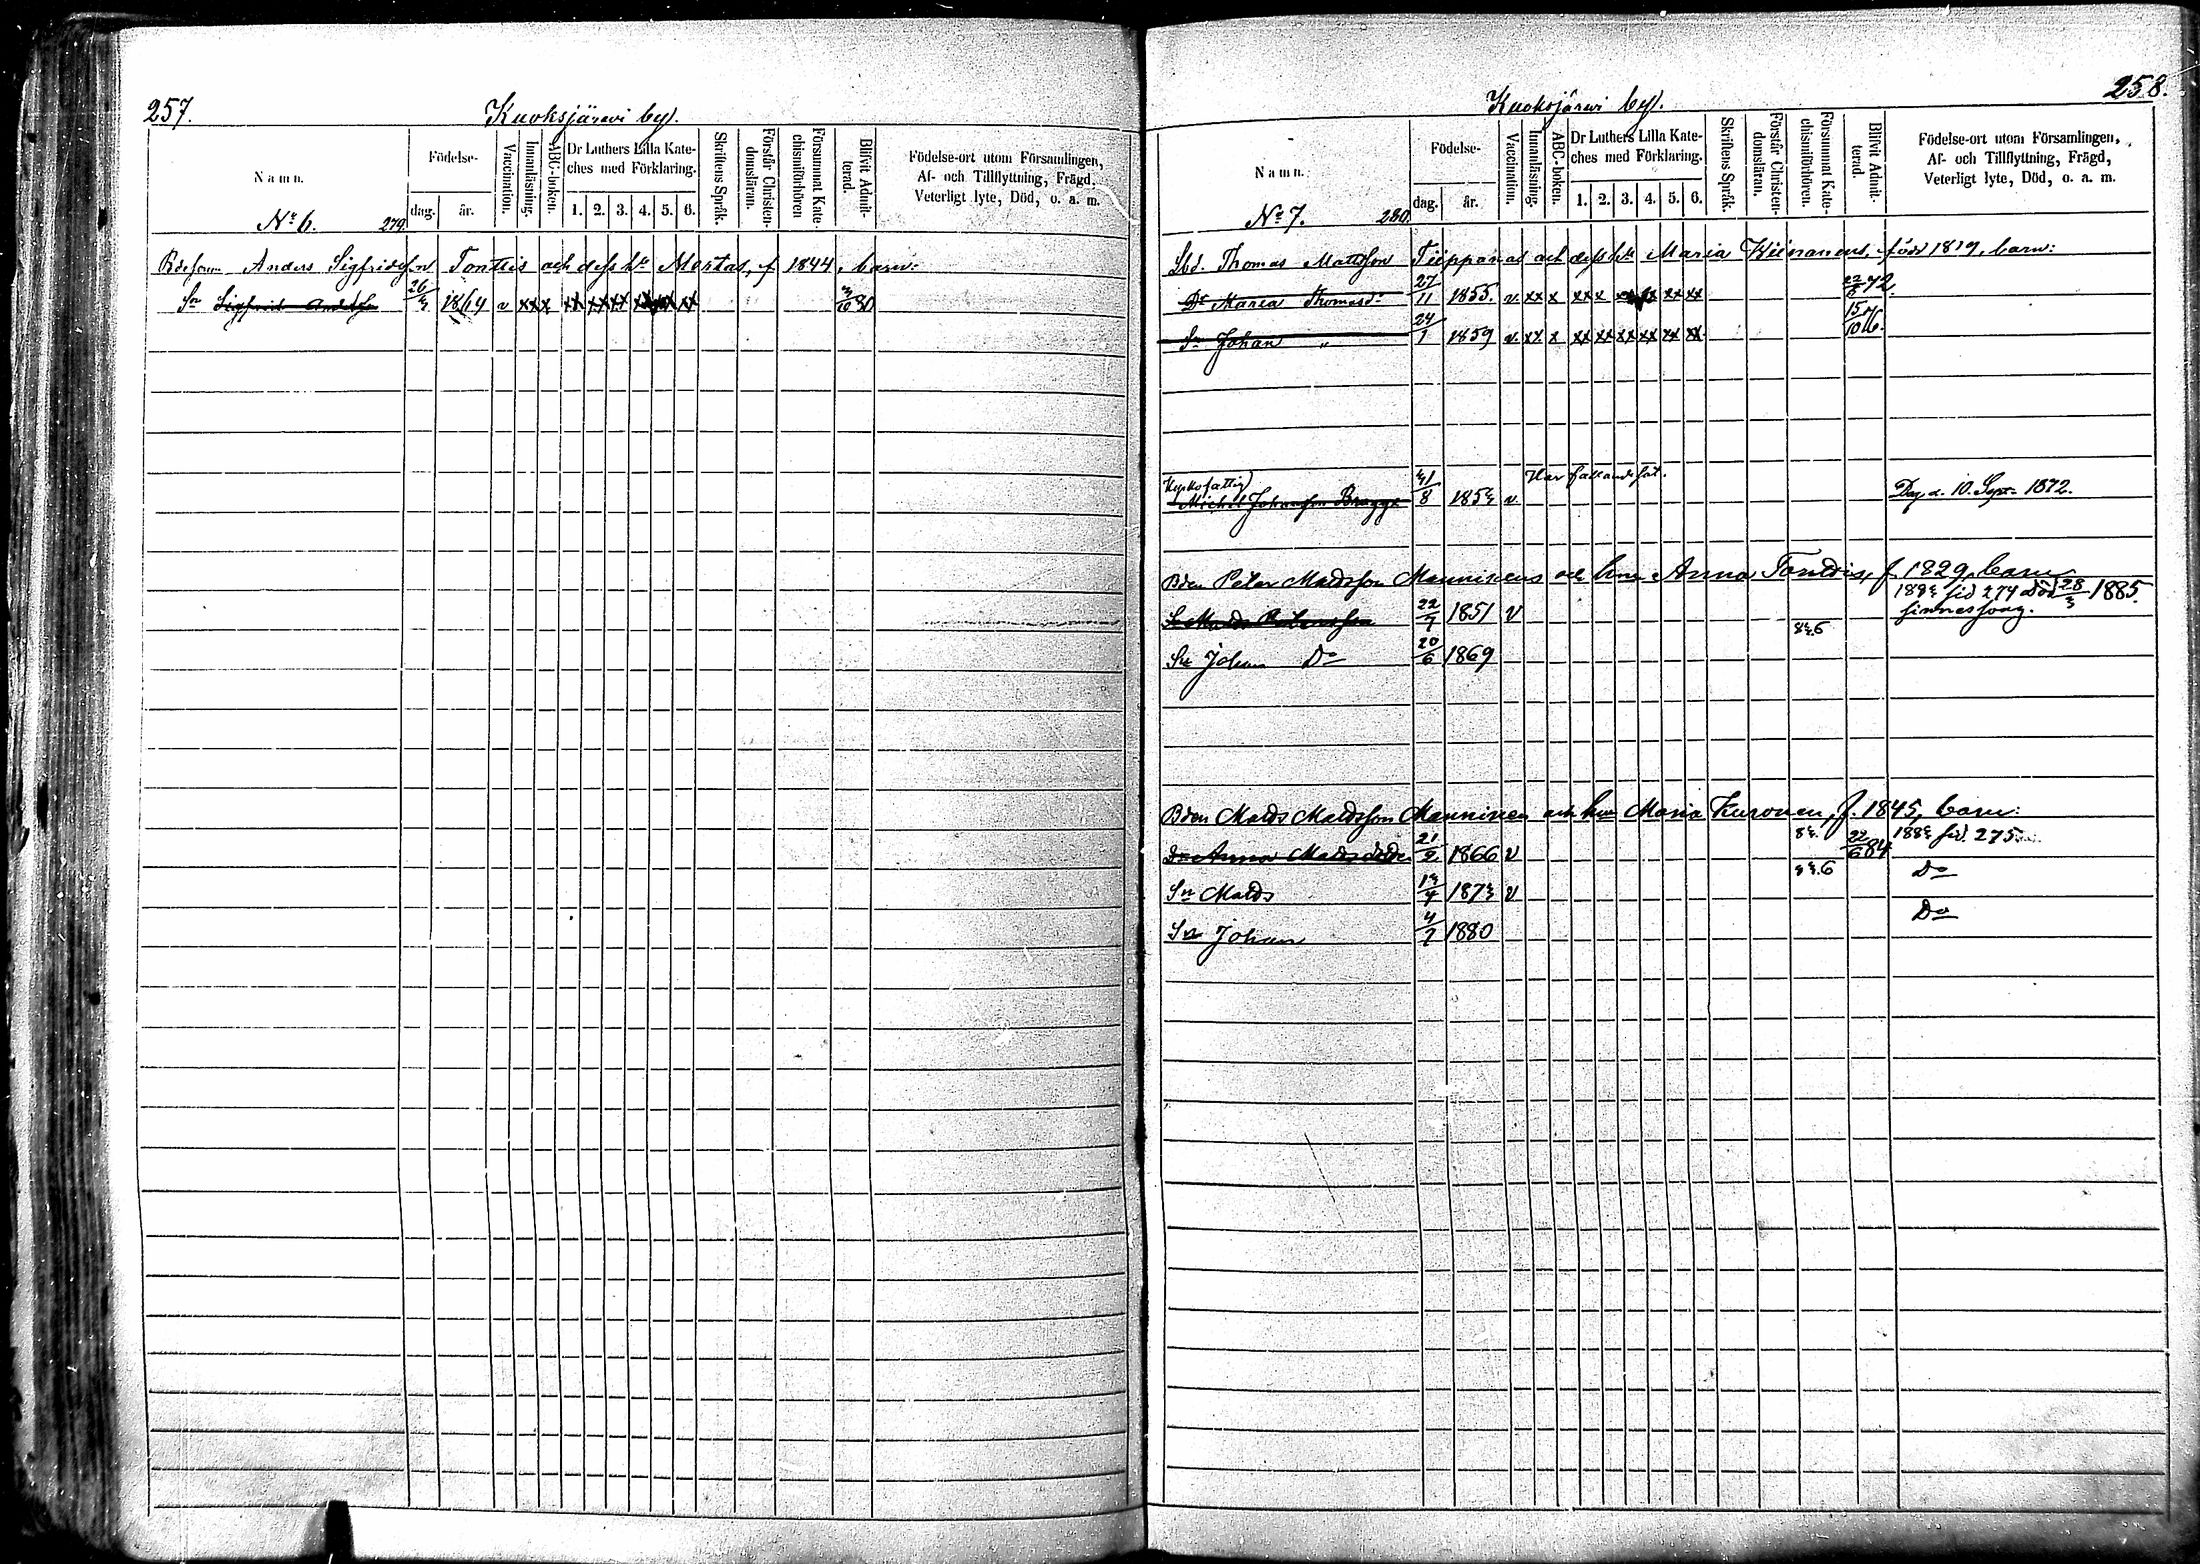 257.
Kuoksjärwi by.
Namn.
Födelse-
dag.
år.
Vaccination.
Innanläsning.
ABC-boken.
Dr Luthers Lilla Kate-
ches med Förklaring.
1. 2. 3. 4. 5. 6.
Skriftens Språk.
Förstår Christen-
domsläran.
Försummat Kate-
chismiförhören
Blifvit Admit-
terad.
Födelse-ort utom Församlingen,
Af- och Tillflyttning, Frägd,
Veterligt lyte, Död, o. a. m.
No 6. 279.
Anders Sigfridsson Tonttis och dess hu Mortas, f 1844, barn:
Sn Sigfrid Andrss 26/3 1864 v xx x xx xx xx xx xx xx 3/10 80
258.
Kuoksjärwi by.
Namn.
Födelse-
dag.
år.
Vaccination.
Innanläsning.
ABC-boken.
Dr Luthers Lilla Kate-
ches med Förklaring.
1. 2. 3. 4. 5. 6.
Skriftens Språk.
Förstår Christen-
domsläran.
Försummat Kate-
chismiförhören.
Blifvit Admit-
terad.
Födelse-ort utom Församlingen,
Af- och Tillflyttning, Frägd,
Veterligt lyte, Död, o. a. m.
No 7. 280.
Lbd. Thomas Mattsson Tiippanas och dess hu Maria Kiinanens, född 1819, barn:
Dr Maria Thomasdr 27/11 1855. v. xx x xxx xx xx xx 22/6 72.
Sn Johan " 24/1 1859 v. xx x xx xx xx xx xx xx 15/10 76.
Kyrkofattig Har fallandesot.
Michel Johansson Bragge /8 1853 v Dog d. 10. Sept. 1872.
Bden Peter Mattsson Manninens och hru Anna Tonttis, f. 1829, barn
1883 sid 274 död 28/3 1885.
Sn Matts Petersson 22/7 1851 v sinnessvag.
83.6
Sn Johan Do 20/6 1869
Bden Matts Mattsson Manninen och hru Maria Kuronen, f. 1845, barn:
Dr Anna Mattsdotter 21/2 1866 v 83. 22/6 84 1883 sid. 275.
Sn Matts 13/4 1873 v 83.6 Do
Sn Johan 4/7 1880 Do